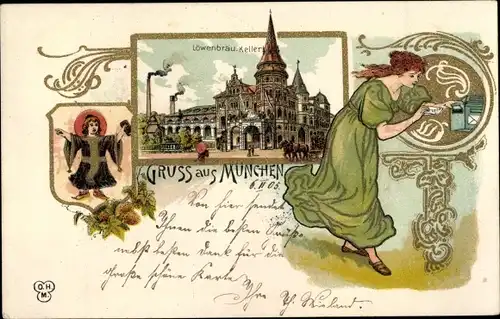 Löwenbräu. Keller
GRUSS aus MÜNCHEN
6.II.05.
Von hier sendet
Ihnen die besten Grüße
nebst besten Dank für die
große schöne Karte
Ihre Th. Wieland.
O.H
M.